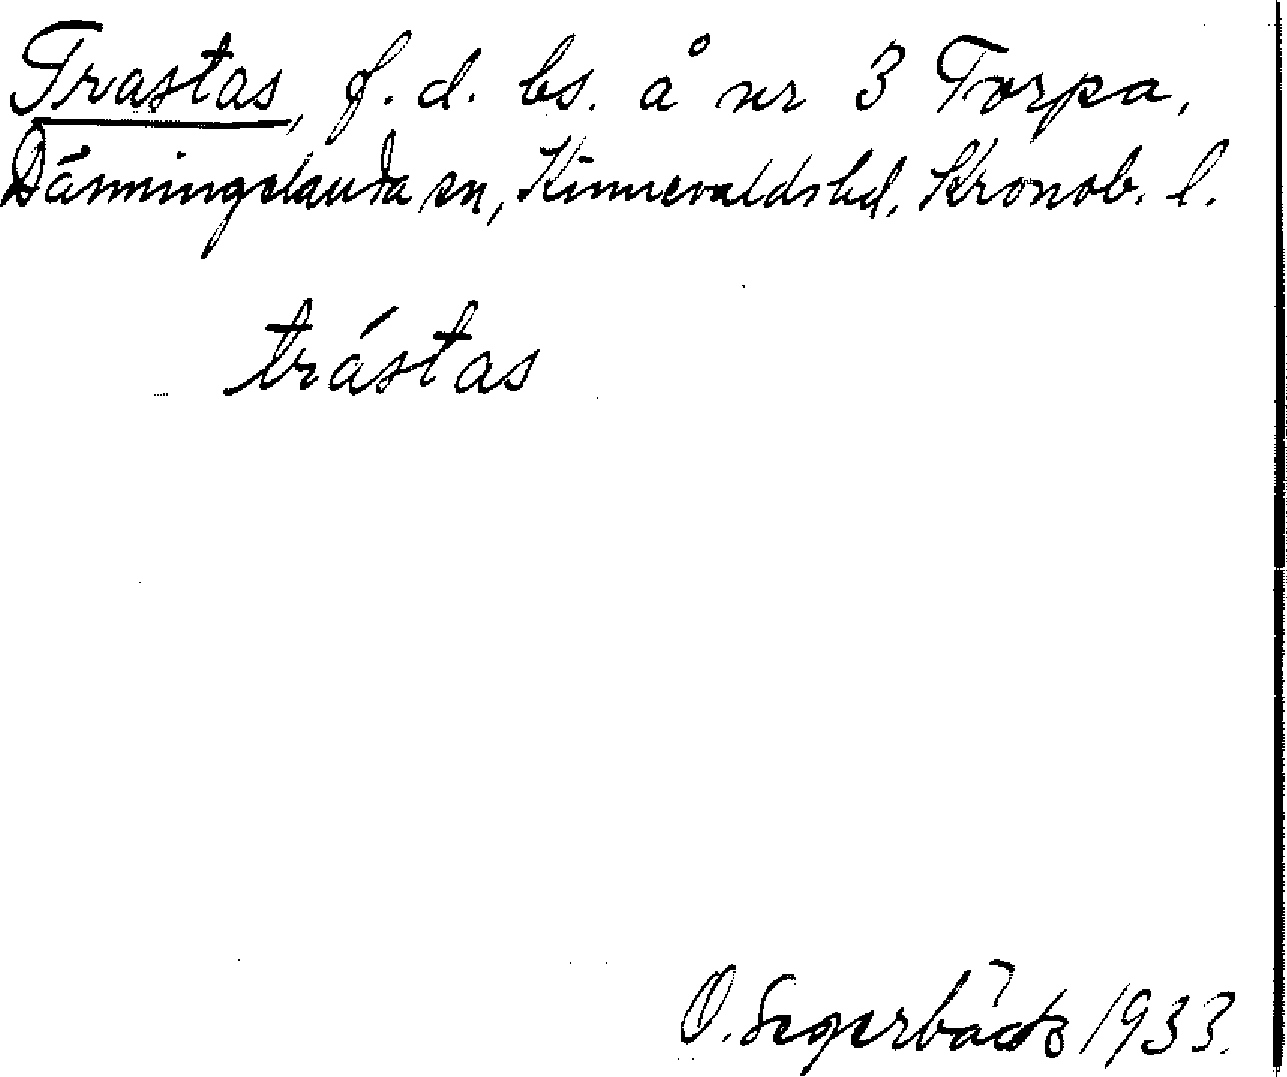 Trastas, f. d. bs. å nr 3 Torpa,
Dänningelanda sn, Kinnevaldshd, Kronob. l.
trástas
O. Segerbäck 1933.